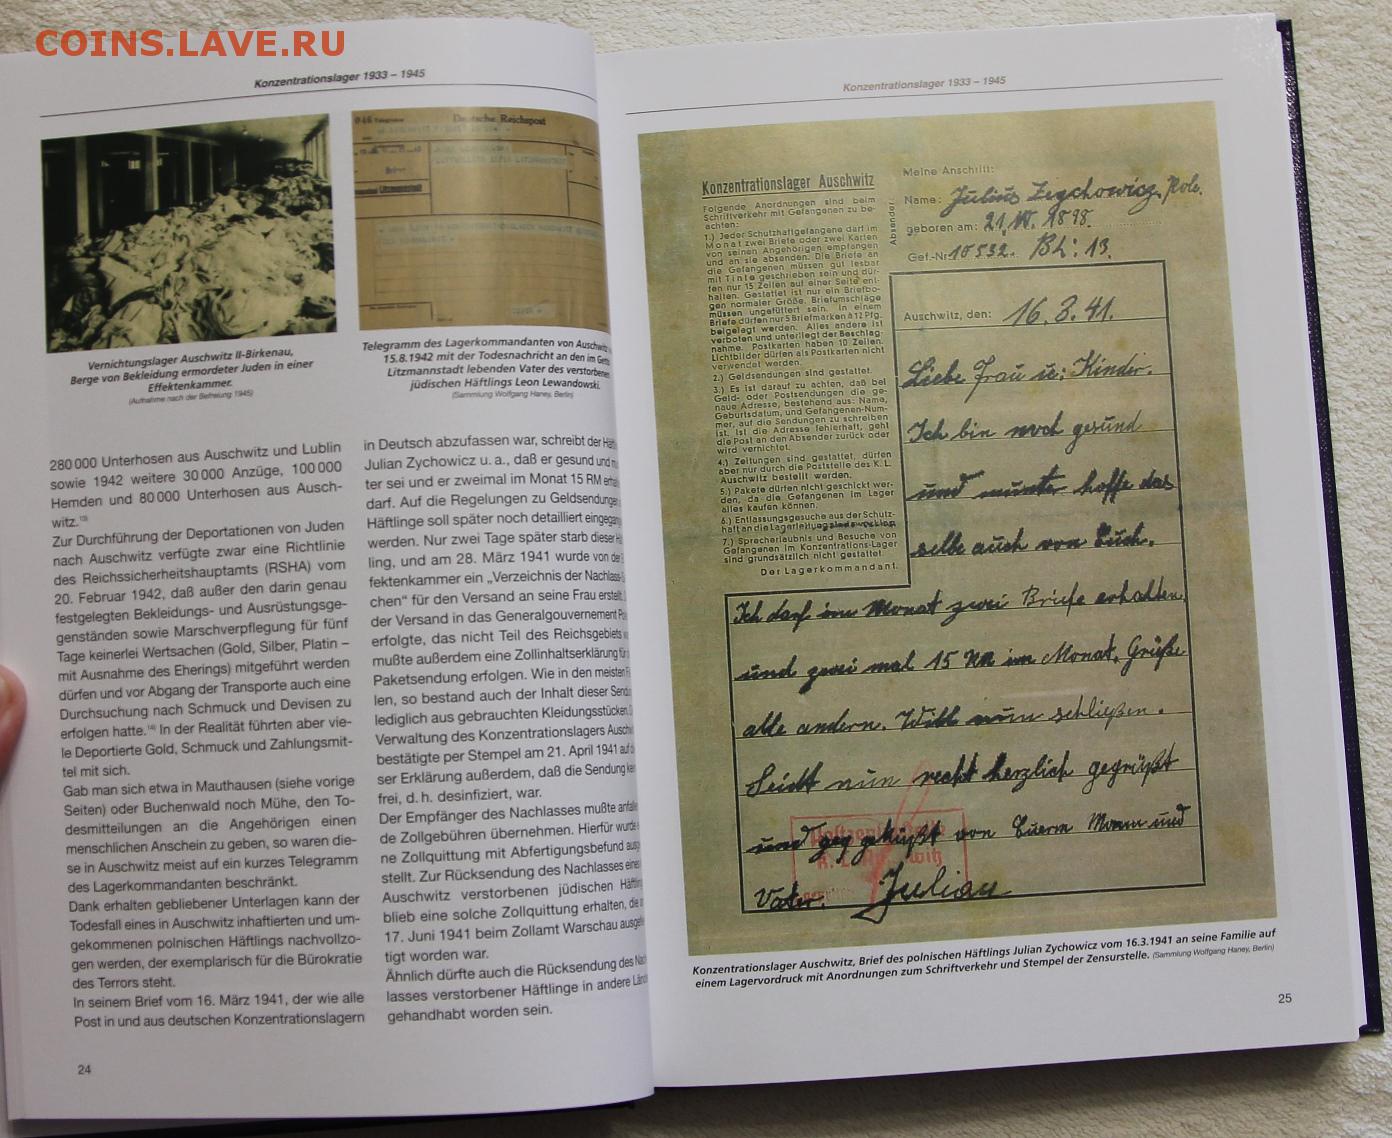 COINS.LAVE.RU
Konzentrationslager 1933 – 1945
Deutsche Reichspost
Litzmannstadt
Vernichtungslager Auschwitz II-Birkenau,
Berge von Bekleidung ermordeter Juden in einer
Effektenkammer.
(Aufnahme nach der Befreiung 1945)
Telegramm des Lagerkommandanten von Auschwitz
15.8.1942 mit der Todesnachricht an den im Getto
Litzmannstadt lebenden Vater des verstorbenen
jüdischen Häftlings Leon Lewandowski.
(Sammlung Wolfgang Haney, Berlin)
280 000 Unterhosen aus Auschwitz und Lublin
sowie 1942 weitere 30 000 Anzüge, 100 000
Hemden und 80 000 Unterhosen aus Ausch-
witz.
Zur Durchführung der Deportationen von Juden
nach Auschwitz verfügte zwar eine Richtlinie
des Reichssicherheitshauptamts (RSHA) vom
20. Februar 1942, daß außer den darin genau
festgelegten Bekleidungs- und Ausrüstungsge-
genständen sowie Marschverpflegung für fünf
Tage keinerlei Wertsachen (Gold, Silber, Platin –
mit Ausnahme des Eherings) mitgeführt werden
dürfen und vor Abgang der Transporte auch eine
Durchsuchung nach Schmuck und Devisen zu
erfolgen hatte. In der Realität führten aber vie-
le Deportierte Gold, Schmuck und Zahlungsmit-
tel mit sich.
Gab man sich etwa in Mauthausen (siehe vorige
Seiten) oder Buchenwald noch Mühe, den To-
desmitteilungen an die Angehörigen einen
menschlichen Anschein zu geben, so waren die-
se in Auschwitz meist auf ein kurzes Telegramm
des Lagerkommandanten beschränkt.
Dank erhalten gebliebener Unterlagen kann der
Todesfall eines in Auschwitz inhaftierten und um-
gekommenen polnischen Häftlings nachvollzo-
gen werden, der exemplarisch für die Bürokratie
des Terrors steht.
In seinem Brief vom 16. März 1941, der wie alle
Post in und aus deutschen Konzentrationslagern
in Deutsch abzufassen war, schreibt der
Julian Zychowicz u. a., daß er gesund und
ter sei und er zweimal im Monat 15 RM
darf. Auf die Regelungen zu Geldsendungen
Häftlinge soll später noch detailliert
werden. Nur zwei Tage später starb dieser
ling, und am 28. März 1941 wurde von der
fektenkammer ein „Verzeichnis der
chen“ für den Versand an seine Frau erstellt.
der Versand in das Generalgouvernement
erfolgte, das nicht Teil des Reichsgebiets
mußte außerdem eine Zollinhaltserklärung
Paketsendung erfolgen. Wie in den meisten
len, so bestand auch der Inhalt dieser
lediglich aus gebrauchten Kleidungsstücken.
Verwaltung des Konzentrationslagers
bestätigte per Stempel am 21. April 1941 auf
ser Erklärung außerdem, daß die Sendung
frei, d. h. desinfiziert, war.
Der Empfänger des Nachlasses mußte
de Zollgebühren übernehmen. Hierfür wurde
ne Zollquittung mit Abfertigungsbefund
stellt. Zur Rücksendung des Nachlasses eines
Auschwitz verstorbenen jüdischen
blieb eine solche Zollquittung erhalten, die
17. Juni 1941 beim Zollamt Warschau
tigt worden war.
Ähnlich dürfte auch die Rücksendung des
lasses verstorbener Häftlinge in andere
gehandhabt worden sein.
24
Konzentrationslager 1933 – 1945
Konzentrationslager Auschwitz
Folgende Anordnungen sind beim
Schriftverkehr mit Gefangenen zu be-
achten:
1.) Jeder Schutzhaftgefangene darf im
Monat zwei Briefe oder zwei Karten
von seinen Angehörigen empfangen
und an sie absenden. Die Briefe an
die Gefangenen müssen gut lesbar
mit Tinte geschrieben sein und dür-
fen nur 15 Zeilen auf einer Seite ent-
halten. Gestattet ist nur ein Briefbo-
gen normaler Größe. Briefumschläge
müssen ungefüttert sein. In einem
Briefe dürfen nur 5 Briefmarken à 12 Pfg.
beigelegt werden. Alles andere ist
verboten und unterliegt der Beschlag-
nahme. Postkarten haben 10 Zeilen.
Lichtbilder dürfen als Postkarten nicht
verwendet werden.
2.) Geldsendungen sind gestattet.
3.) Es ist darauf zu achten, daß bei
Geld- oder Postsendungen die ge-
naue Adresse, bestehend aus: Name,
Geburtsdatum, und Gefangenen-Num-
mer, auf die Sendungen zu schreiben
ist. Ist die Adresse fehlerhaft, geht
die Post an den Absender zurück oder
wird vernichtet.
4.) Zeitungen sind gestattet, dürfen
aber nur durch die Poststelle des K. L.
Auschwitz bestellt werden.
5.) Pakete dürfen nicht geschickt wer-
den, da die Gefangenen im Lager
alles kaufen können.
6.) Entlassungsgesuche aus der Schutz-
haft an die Lagerleitung sind zwecklos
7.) Sprecherlaubnis und Besuche von
Gefangenen im Konzentrations-Lager
sind grundsätzlich nicht gestattet.
Der Lagerkommandant.
Absender:
Meine Anschrift:
Name: Julius Zychowicz. Pole.
geboren am: 21. 1898.
Gef.-Nr. 10532. Bl: 13.
Auschwitz, den: 16. 3. 41.
Liebe Frau u: Kinder.
Ich bin noch gesund
und munter hoffe das
selbe auch von Euch.
Ich darf im Monat zwei Briefe erhalten.
und zwei mal 15 RM im Monat. Grüße
alle andern. Will nun schließen.
Seidt nun recht herzlich gegrüßt
und geküßt von Euerm Mann und
Vater. Julian
Konzentrationslager Auschwitz, Brief des polnischen Häftlings Julian Zychowicz vom 16.3.1941 an seine Familie auf
einem Lagervordruck mit Anordnungen zum Schriftverkehr und Stempel der Zensurstelle. (Sammlung Wolfgang Haney, Berlin)
25